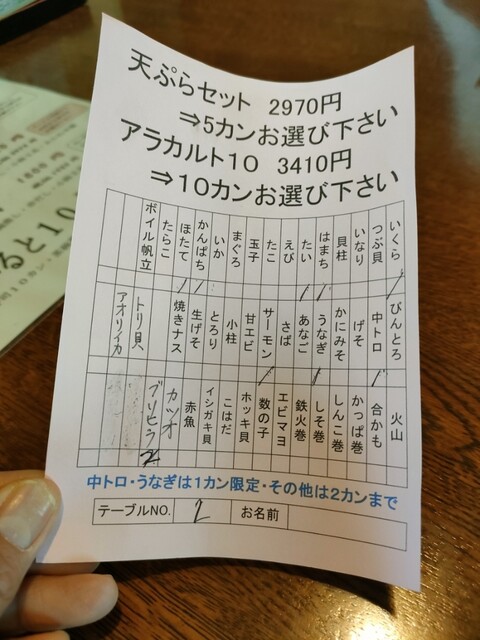 天ぷらセット 2970円
⇒5カンお選び下さい
アラカルト10 3410円
⇒10カンお選び下さい
いくら
つぶ貝
いなり
貝柱
はまち
たい
えび
たこ
玉子
まぐろ
いか
かんぱち
ほたて
たらこ
ボイル帆立
びんとろ
中トロ
げそ
かにみそ
うなぎ
あなご
さば
サーモン
甘エビ
小柱
とろり
生げそ
焼きナス
トリ貝
アオリイカ
火山
合かも
かっぱ巻
しんこ巻
しそ巻
鉄火巻
エビマヨ
数の子
ホッキ貝
こはだ
イシガキ貝
赤魚
カツオ
ブリヒラ
2
中トロ・うなぎは1カン限定・その他は2カンまで
テーブルNO. 2 お名前